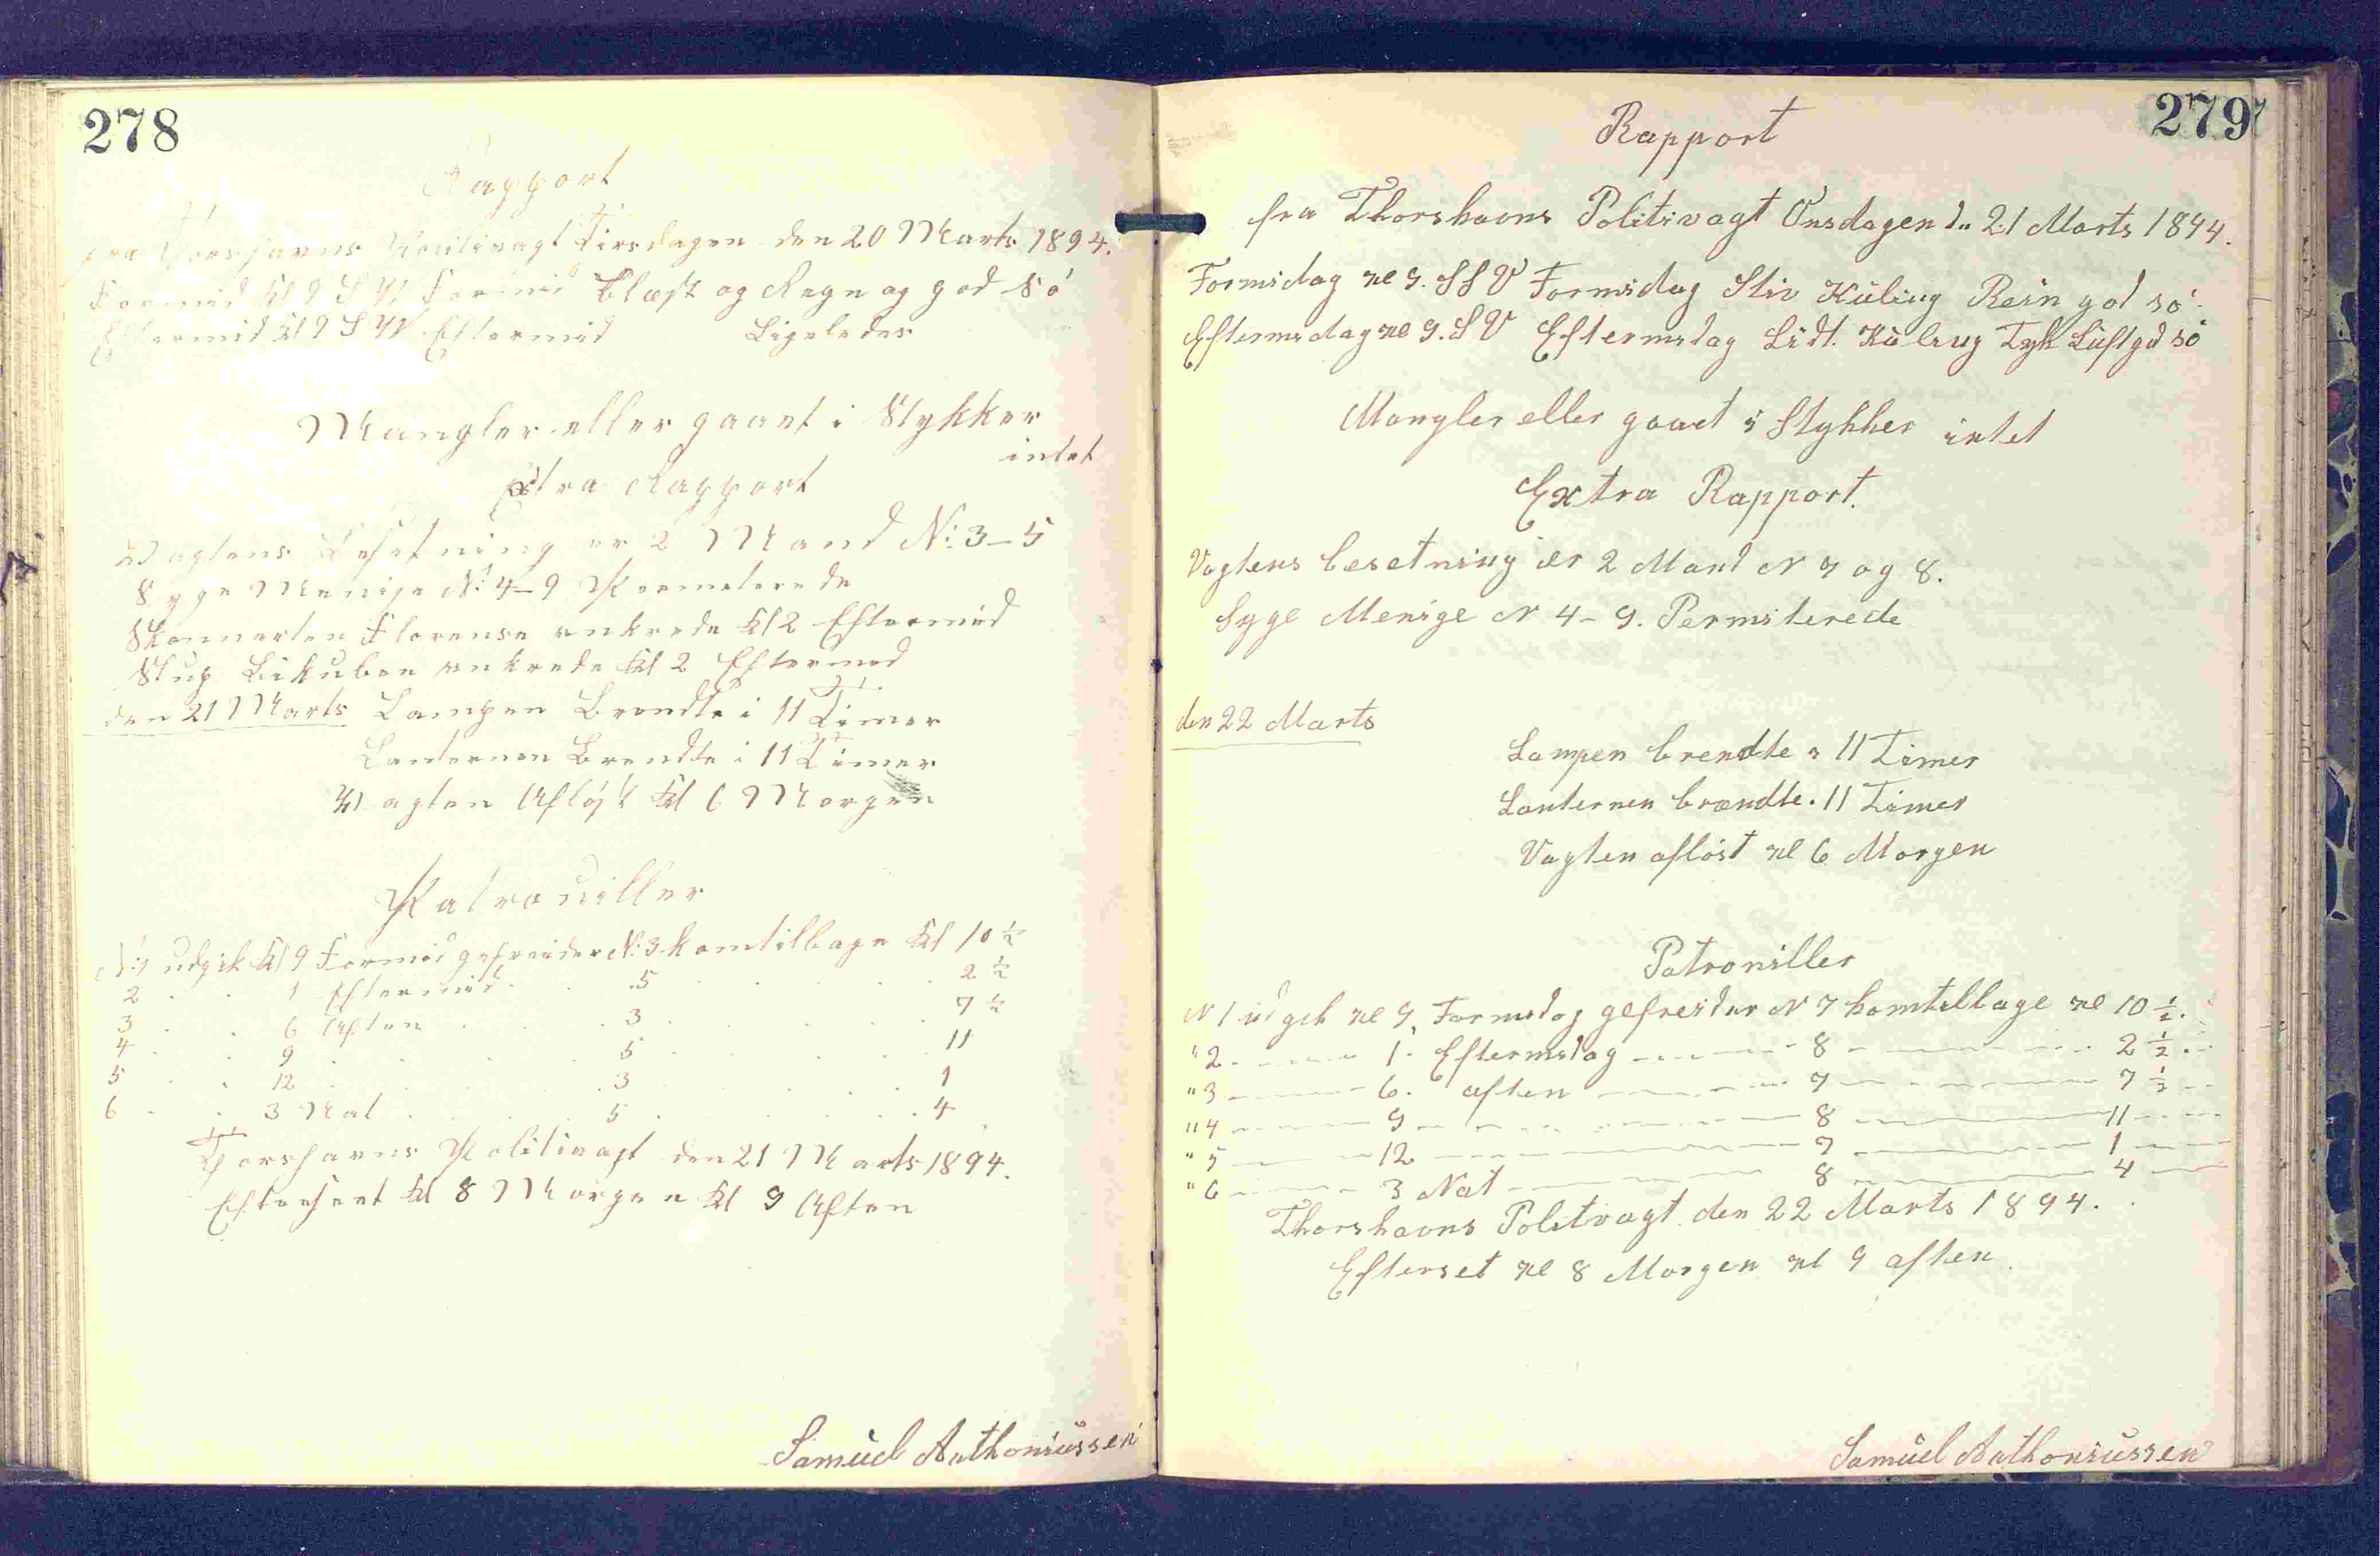 278
Rapport
fra Thorshavns Politivagt Tirsdagen den 20 Marts 1894.
Formid Kl 9 S V Formid Blæst og Regn og god Sö
Eftermid Kl 9 S V Eftermid Ligeledes
Mangler eller gaaet i Stykker
intet
Extra Rapport
Vagtens Besetning er 2 Mand N: 3-5
Syge Menige N: 4-9 Permeterede
Skonnerten Florense ankrede Kl 2 Eftermid
Slup Bikuben ankrede Kl 2 Eftermed
den 21 Marts Lampen Brendte i 11 Timer
Lanternen Brendte i 11 Timer
Vagten Afløst Kl 6 Morgen
Patrouiller
N: 1 udgik Kl 9 Formid gefreider N: 3 kom tilbage Kl 10 ½
2 . . 1 Eftermid . . 5 . . . 2 ½
3 . . 6 Aften . . 3 . . . 7 ½
4 . . 9 . . 5 . . . 11
5 . . 12 . . 3 . . . 1
6 . . 3 Nat . . 5 . . . 4
Thorshavns Politivagt den 21 Marts 1894.
Efterseet Kl 8 Morgen Kl 9 Aften
Samuel Anthoniussen
279
Rapport
fra Thorshavns Politivagt Onsdagen d.. 21 Marts 1894.
Formidag Kl 9. SSV Formidag Stiv Küling Rein god sö.
Eftermidag Kl 9. S V Eftermidag Lidt. Küling Tyk Luft god sö
Mangler eller gaaet i Stykker intet
Extra Rapport.
Vagtens besetning er 2 Mand N 7 og 8.
Syge Menige N 4-9. Permiterede
den 22 Marts
Lampen brendte i 11 Timer
Lanternen brændte. 11 Timer
Vagten afløst Kl 6 Morgen
Patroniller
N 1 udgik Kl 9 Formidag gefreider N 7 kom tilbage Kl 10 ½.
" 2 - - 1. Eftermidag - - 8 - - 2 ½.
" 3 - - 6. aften - - 7 - - 7 ½
" 4 - - 9 - - 8 - - 11
" 5 - - 12 - - 7 - - 1
" 6 - - 3 Nat - - 8 - - 4
Thorshavns Politvagt den 22 Marts 1894.
Efterset Kl 8 Morgen Kl 9 aften.
Samuel Anthoniussen